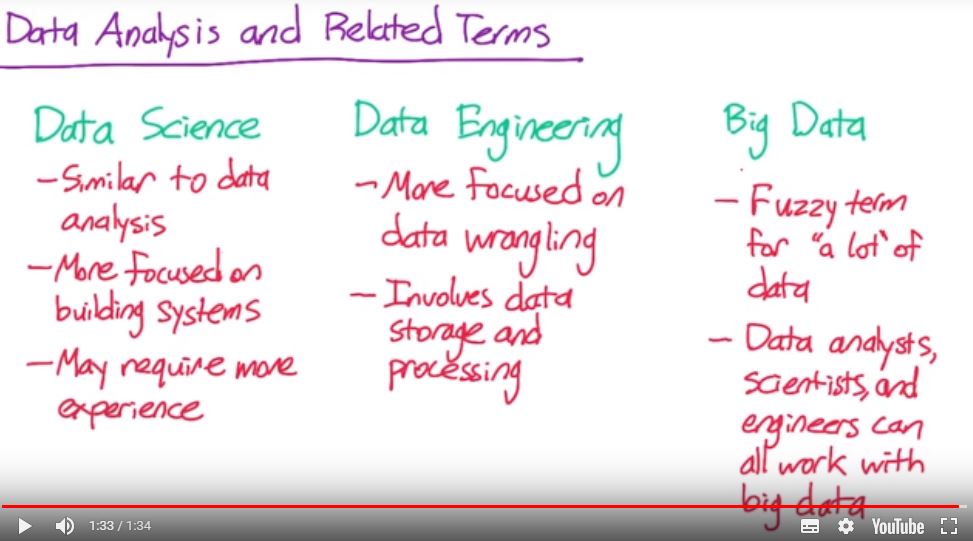 Data Analysis and Related Terms
Data Science
- Similar to data
analysis
- More focused on
building systems
- May require more
experience
Data Engineering
- More focused on
data wrangling
- Involves data
storage and
processing
Big Data
- Fuzzy term
for "a lot" of
data
- Data analysts,
scientists, and
engineers can
all work with
big data
1:33 / 1:34
YouTube